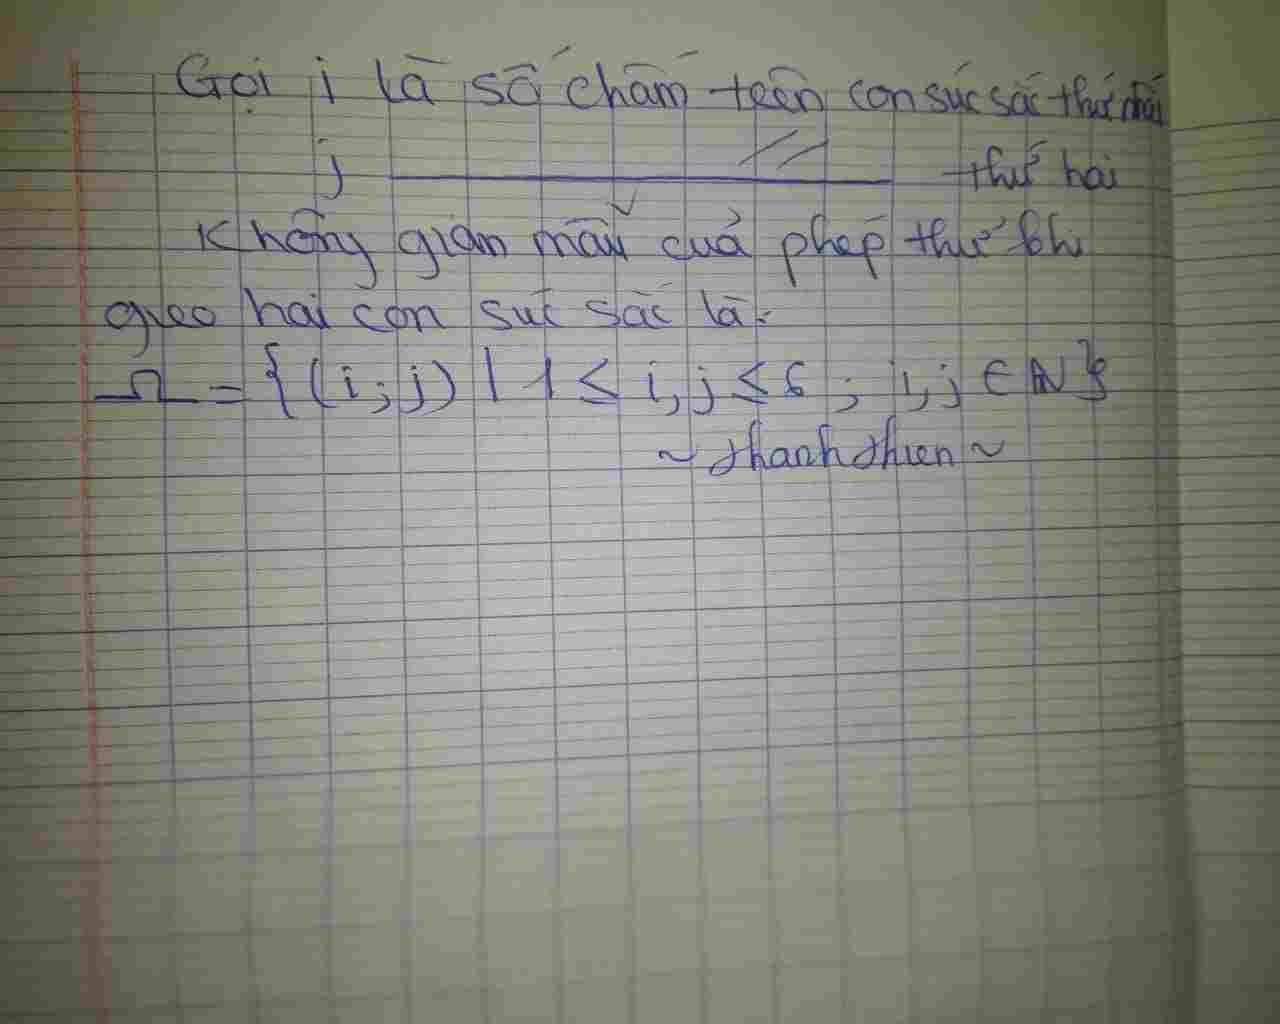 Gọi i là số chấm trên con súc sắc thứ nhất
j // thứ hai
Không gian mẫu của phép thử khi
gieo hai con súc sắc là:
Ω = {(i;j) | 1 ≤ i,j ≤ 6 ; i,j ∈ N}
~ thanhthien ~